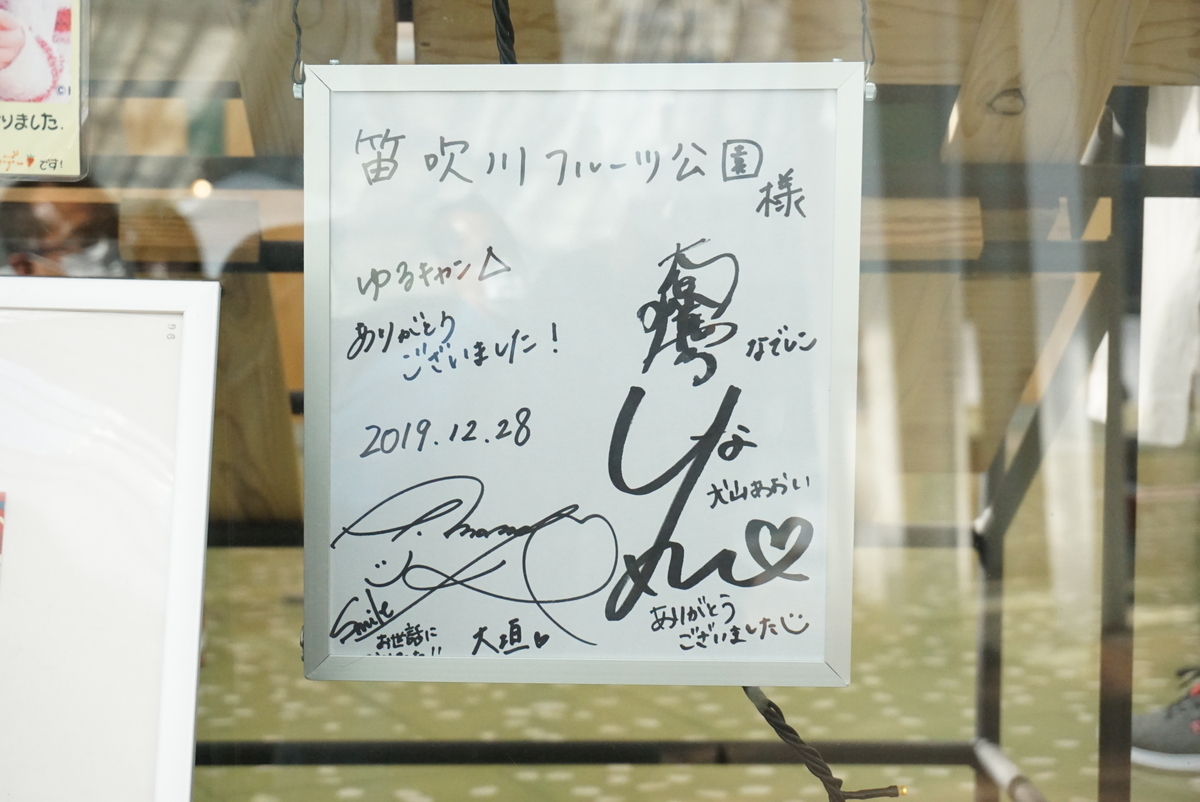 笛吹川フルーツ公園
様
ゆるキャン△
ありがとう
ございました！
2019.12.28
なでしこ
りな
犬山あおい
めい♡
ありがとう
ございました
Smile
お世話に
大垣♥
りました.
です!